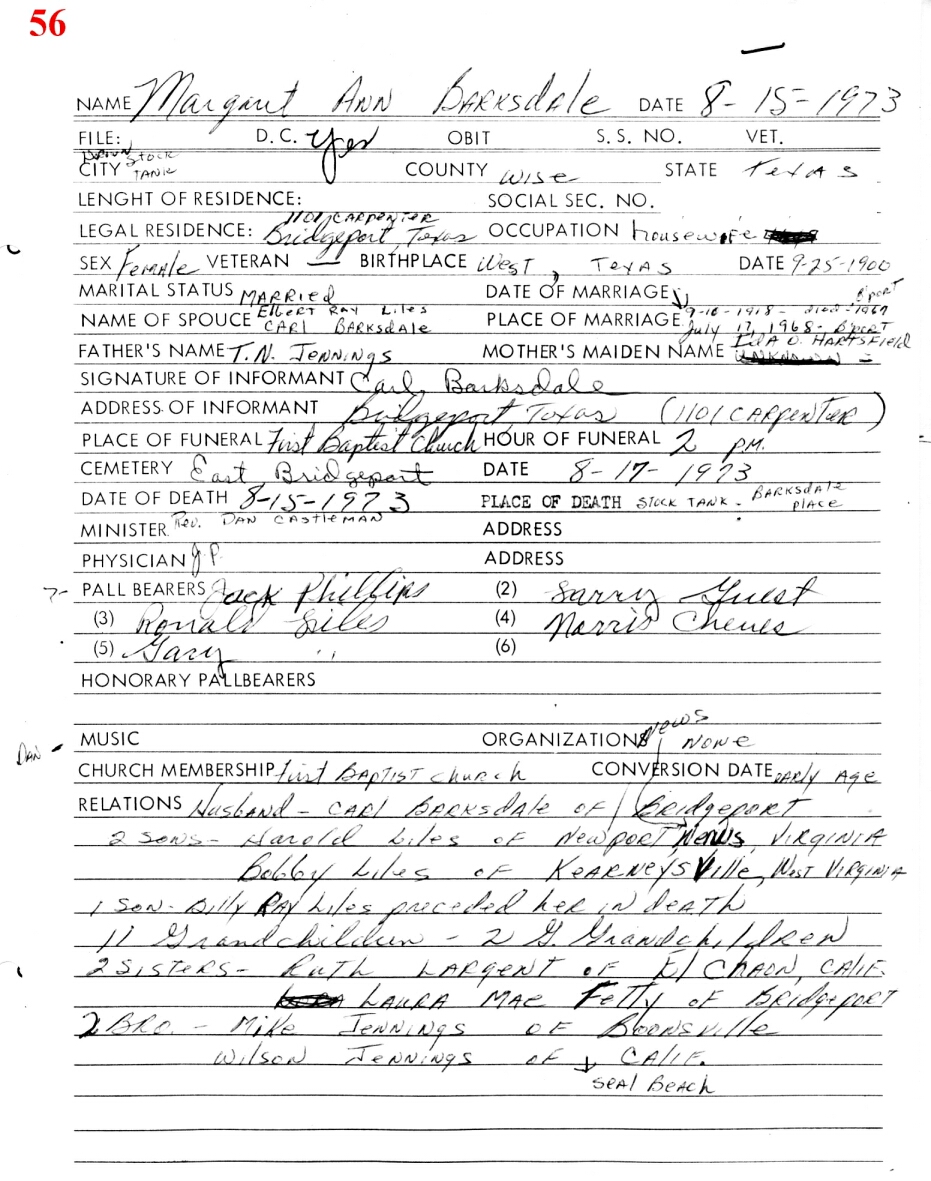 56
NAME Margaret ANN BARKSdAlE DATE 8-15-1973
FILE: D.C. yes OBIT S.S. NO. VET.
CITY STOCK TANK COUNTY WISE STATE TEXAS
LENGHT OF RESIDENCE: SOCIAL SEC. NO.
1101 CARPENTER
LEGAL RESIDENCE: Bridgeport, Texas OCCUPATION housewife
SEX Female VETERAN — BIRTHPLACE West, TEXAS DATE 9-25-1900
MARITAL STATUS MARRiEd DATE OF MARRIAGE B'port
NAME OF SPOUCE Elbert Ray Liles 9-10-1918 - died-1967
CARl BARKSdAle PLACE OF MARRIAGE July 17, 1968- B'port
FATHER'S NAME T.N. JENNINGS MOTHER'S MAIDEN NAME IdA O. HARTSFIELD
SIGNATURE OF INFORMANT Carl Barksdale
ADDRESS OF INFORMANT Bridgeport, Texas (1101 CARPENTER)
PLACE OF FUNERAL First Baptist Church HOUR OF FUNERAL 2 P.M.
CEMETERY East Bridgeport DATE 8-17-1973
DATE OF DEATH 8-15-1973 PLACE OF DEATH STOCK TANK - BARKSdAle PlACE
MINISTER Rev. DAN CASTlEMAN ADDRESS
PHYSICIAN J.P. ADDRESS
PALL BEARERS Jack Phillips (2) Larry Guest
(3) Ronald Liles (4) Norris Cheves
(5) Gary " (6)
HONORARY PALLBEARERS
MUSIC ORGANIZATIONS NONE
News
DAN
CHURCH MEMBERSHIP First BAPTIST church CONVERSION DATE EARly AgE
RELATIONS Husband - CARl BARKSdAle OF BRidgepORT
2 SONS - Harold Liles OF NewpORT News, VIRGINIA
Bobby Liles OF KEARNEYSVille, West VIRGINIA
1 SON - Billy RAy Liles preceded her in deATH
11 Grandchildren - 2 G. GrandchildREN
2 SISTERS - RuTH LARGENT OF El CHAON, CALIF.
LAURA MAE FETTy OF BRIdgEPORT
2 BRO. - MikE JENNINGS OF BOONSville
WilsON JENNINGS OF CALIF.
SEAl BEACh